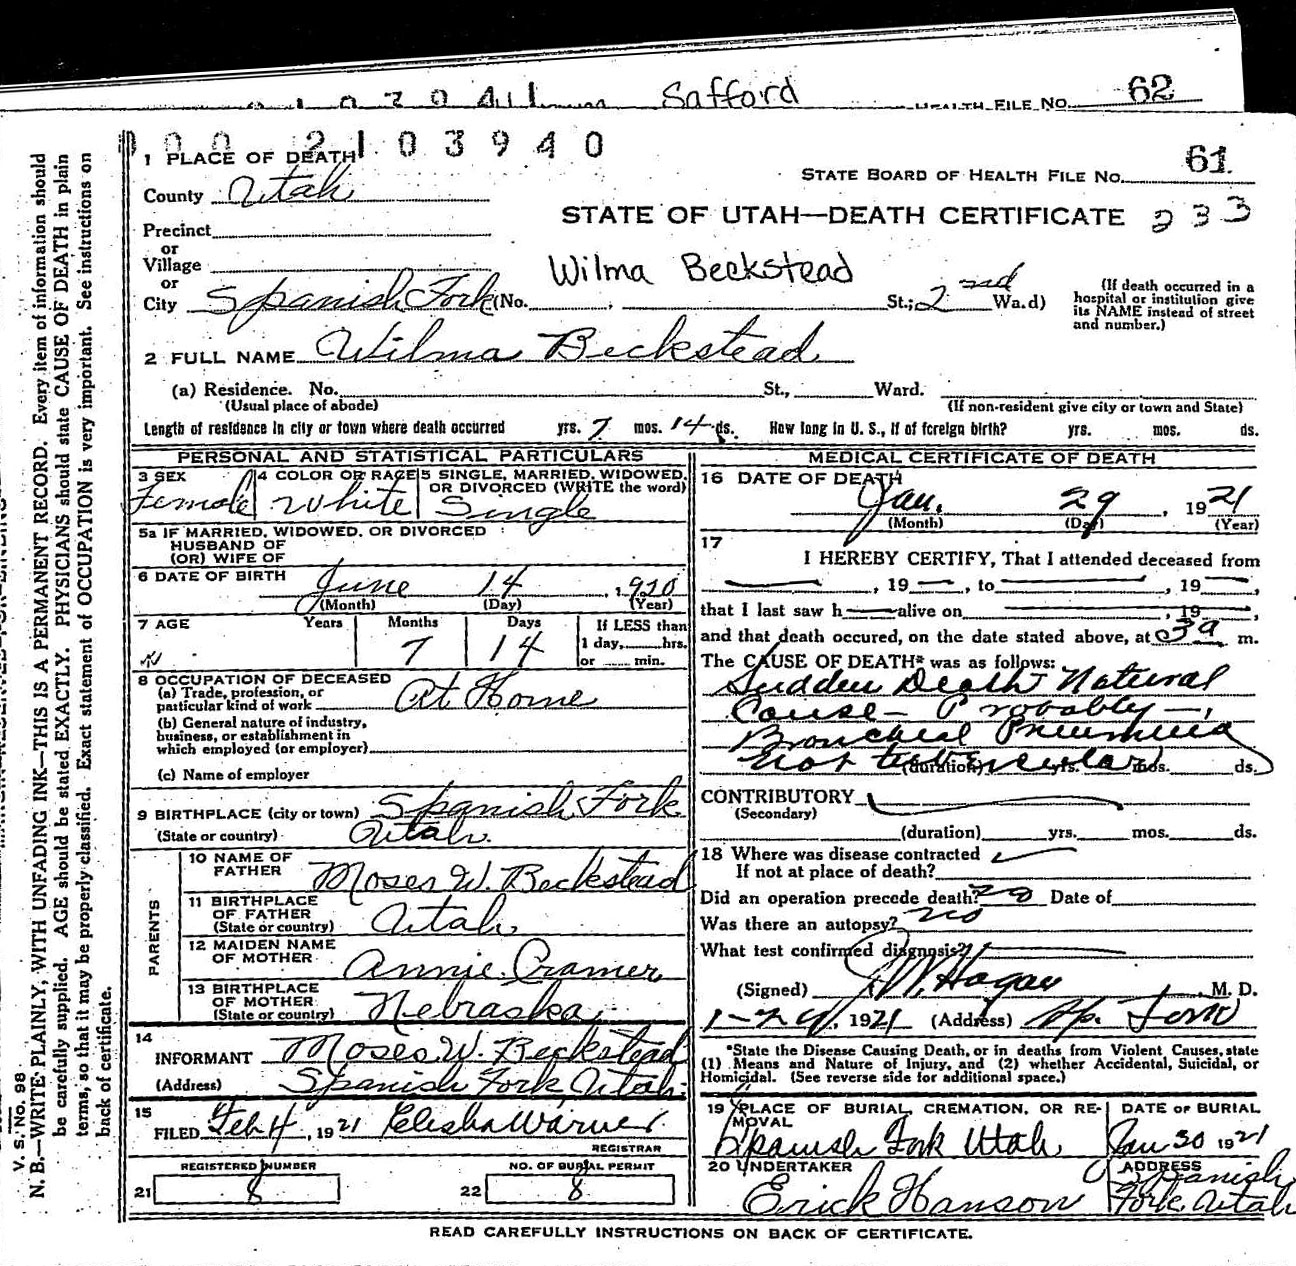 Safford HEALTH FILE NO. 62
2103940
1 PLACE OF DEATH
STATE BOARD OF HEALTH FILE NO. 61
County Utah
STATE OF UTAH—DEATH CERTIFICATE 233
Precinct
or
Village
Wilma Beckstead
or
City Spanish Fork (No. , St.; 2nd Wa.d)
(If death occurred in a
hospital or institution give
its NAME instead of street
and number.)
2 FULL NAME Wilma Beckstead
(a) Residence. No. St., Ward.
(Usual place of abode)
(If non-resident give city or town and State)
Length of residence in city or town where death occurred yrs. 7 mos. 14 ds. How long in U. S., if of foreign birth? yrs. mos. ds.
PERSONAL AND STATISTICAL PARTICULARS
3 SEX Female
4 COLOR OR RACE White
5 SINGLE, MARRIED, WIDOWED,
OR DIVORCED (WRITE the word)
Single
5a IF MARRIED, WIDOWED, OR DIVORCED
HUSBAND OF
(OR) WIFE OF
6 DATE OF BIRTH June 14, 1920
(Month) (Day) (Year)
7 AGE Years Months Days If LESS than
7 14 1 day, hrs.
or min.
8 OCCUPATION OF DECEASED
(a) Trade, profession, or
particular kind of work At Home
(b) General nature of industry,
business, or establishment in
which employed (or employer)
(c) Name of employer
9 BIRTHPLACE (city or town) Spanish Fork
(State or country) Utah.
PARENTS
10 NAME OF
FATHER Moses W. Beckstead
11 BIRTHPLACE
OF FATHER
(State or country) Utah
12 MAIDEN NAME
OF MOTHER Annie Cramer
13 BIRTHPLACE
OF MOTHER
(State or country) Nebraska
14
INFORMANT Moses W. Beckstead
(Address) Spanish Fork, Utah.
15
FILED Feb 4, 1921 Elisha Warner
REGISTRAR
REGISTERED NUMBER
21 8
NO. OF BURIAL PERMIT
22 8
MEDICAL CERTIFICATE OF DEATH
16 DATE OF DEATH
Jan. 29, 1921
(Month) (Day) (Year)
17
I HEREBY CERTIFY, That I attended deceased from
, 19 , to , 19 ,
that I last saw h alive on , 19 ,
and that death occured, on the date stated above, at 3 a m.
The CAUSE OF DEATH* was as follows:
Sudden Death Natural
Cause – Probably –
Bronchial Pneumonia
not tubercular
(duration) yrs. mos. ds.
CONTRIBUTORY
(Secondary)
(duration) yrs. mos. ds.
18 Where was disease contracted
If not at place of death?
Did an operation precede death? no Date of
Was there an autopsy? no
What test confirmed diagnosis?
(Signed) J.W. Hagan, M. D.
1-29, 1921 (Address) Sp. Fork
*State the Disease Causing Death, or in deaths from Violent Causes, state
(1) Means and Nature of Injury, and (2) whether Accidental, Suicidal, or
Homicidal. (See reverse side for additional space.)
19 PLACE OF BURIAL, CREMATION, OR RE-
MOVAL
Spanish Fork Utah
DATE OF BURIAL
Jan 30 1921
20 UNDERTAKER
Erick Hanson
ADDRESS
Spanish
Fork, Utah
READ CAREFULLY INSTRUCTIONS ON BACK OF CERTIFICATE.
V. S. No. 98
N. B.—WRITE PLAINLY, WITH UNFADING INK—THIS IS A PERMANENT RECORD. Every item of information should
be carefully supplied. AGE should be stated EXACTLY. PHYSICIANS should state CAUSE OF DEATH in plain
terms, so that it may be properly classified. Exact statement of OCCUPATION is very important. See instructions on
back of certificate.